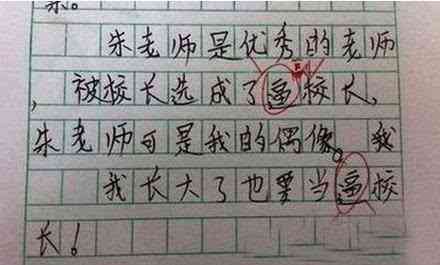 朱老师是优秀的老师
，被校长选成了逼校长，
朱老师可是我的偶像。我
我长大了也要当逼校
长！